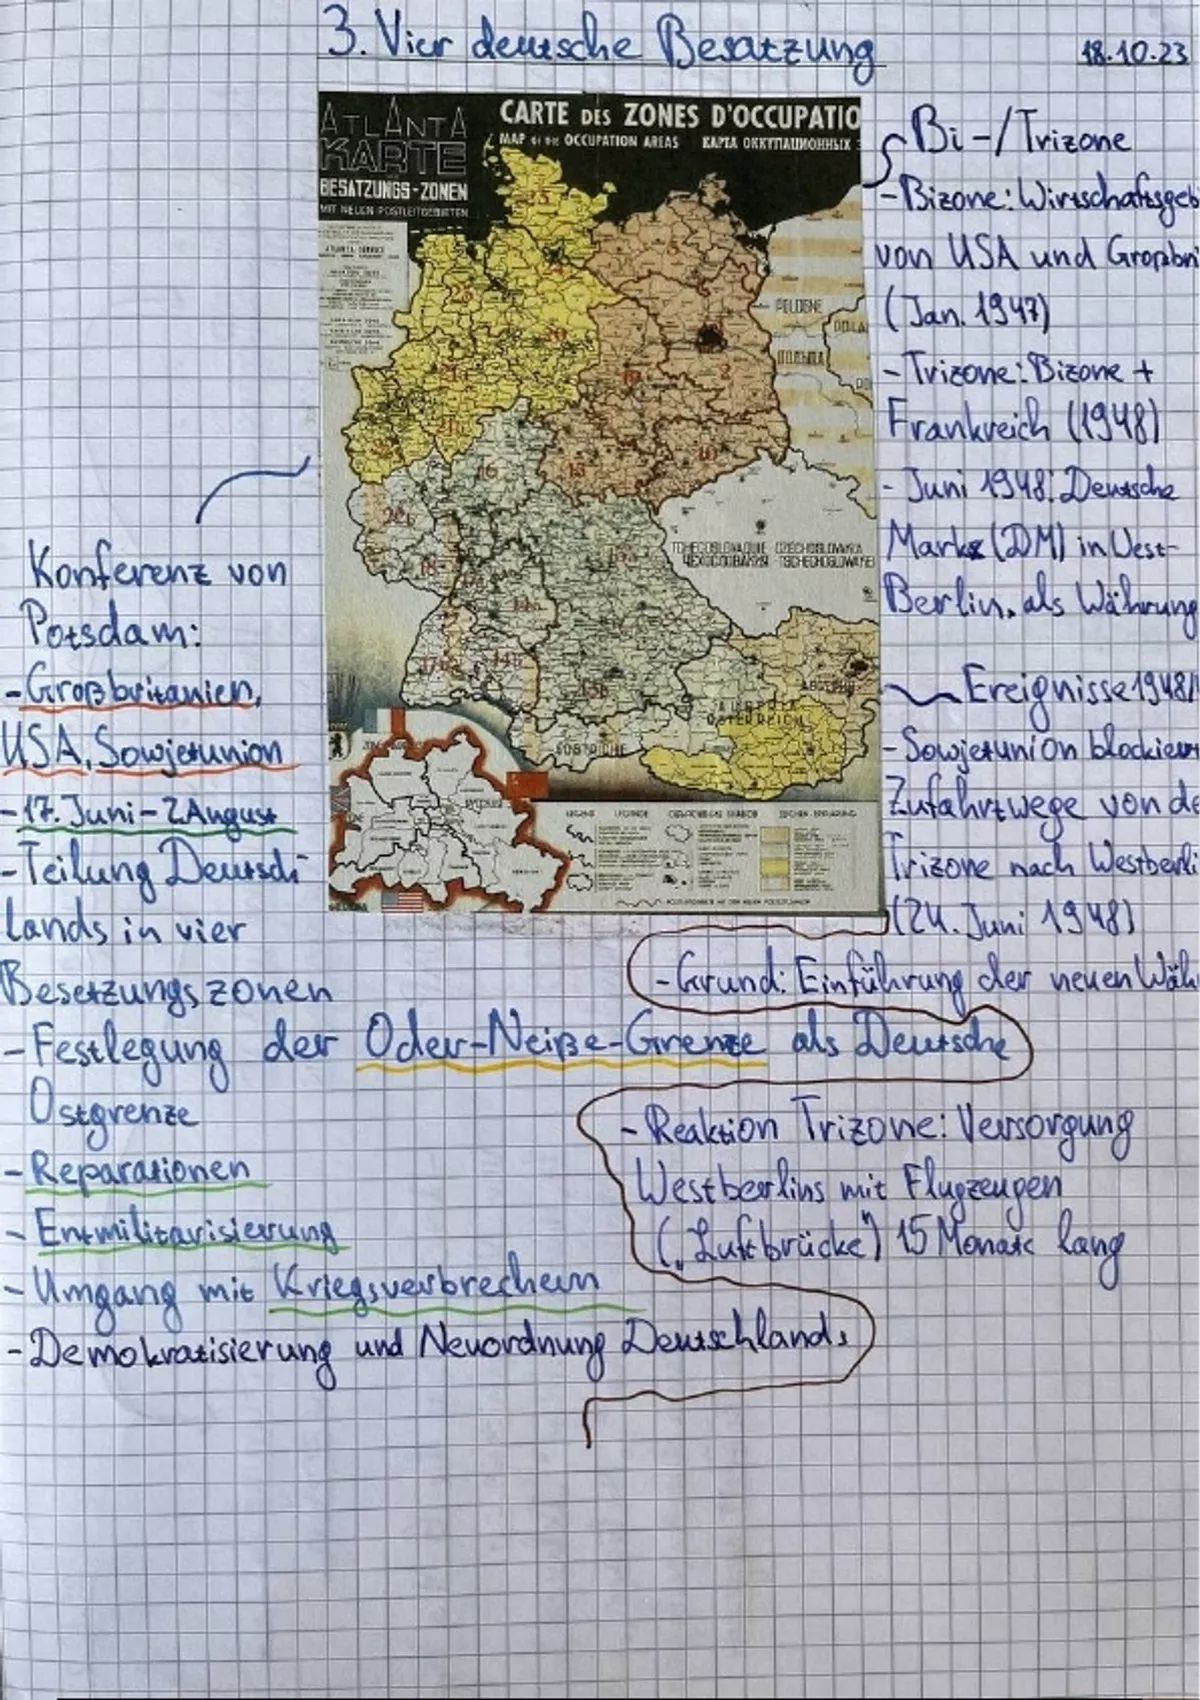 3. Vier deutsche Besatzung
18.10.23
ATLANTA
KARTE
BESATZUNGS-ZONEN
MIT NEUEN POSTLEITGEBIETEN
CARTE DES ZONES D'OCCUPATIO
MAP OF THE OCCUPATION AREAS КАРТА ОККУПАЦИОННЫХ
POLOGNE
TCHECOSLOVAQUIE CZECHOSLOVAKIA
ЧЕХОСЛОВАКИЯ TSCHECHOSLOWAKEI
AUSTRIA
ÖSTERREICH
Konferenz von
Potsdam:
-Großbritanien,
USA, Sowjetunion
-17. Juni-2August
-Teilung Deutsch
lands in vier
Besetzungszonen
-Festlegung der Oder-Neiße-Grenze als Deutsche
Ostgrenze
-Reparationen
-Entmilitarisierung
-Umgang mit Kriegsverbrechern
-Demokratisierung und Neuordnung Deutschlands
Bi-/Trizone
-Bizone: Wirtschaftsgeb
von USA und Großbri
(Jan. 1947)
-Trizone: Bizone +
Frankreich (1948)
- Juni 1948: Deutsche
Mark (DM) in West-
Berlin, als Währung
Ereignisse 1948/
-Sowjetunion blockiert
Zufahrtwege von de
Trizone nach Westberli
(24. Juni 1948)
-Grund: Einführung der neuen Wäh
-Reaktion Trizone: Versorgung
Westberlins mit Flugzeugen
(„Luftbrücke") 15 Monate lang